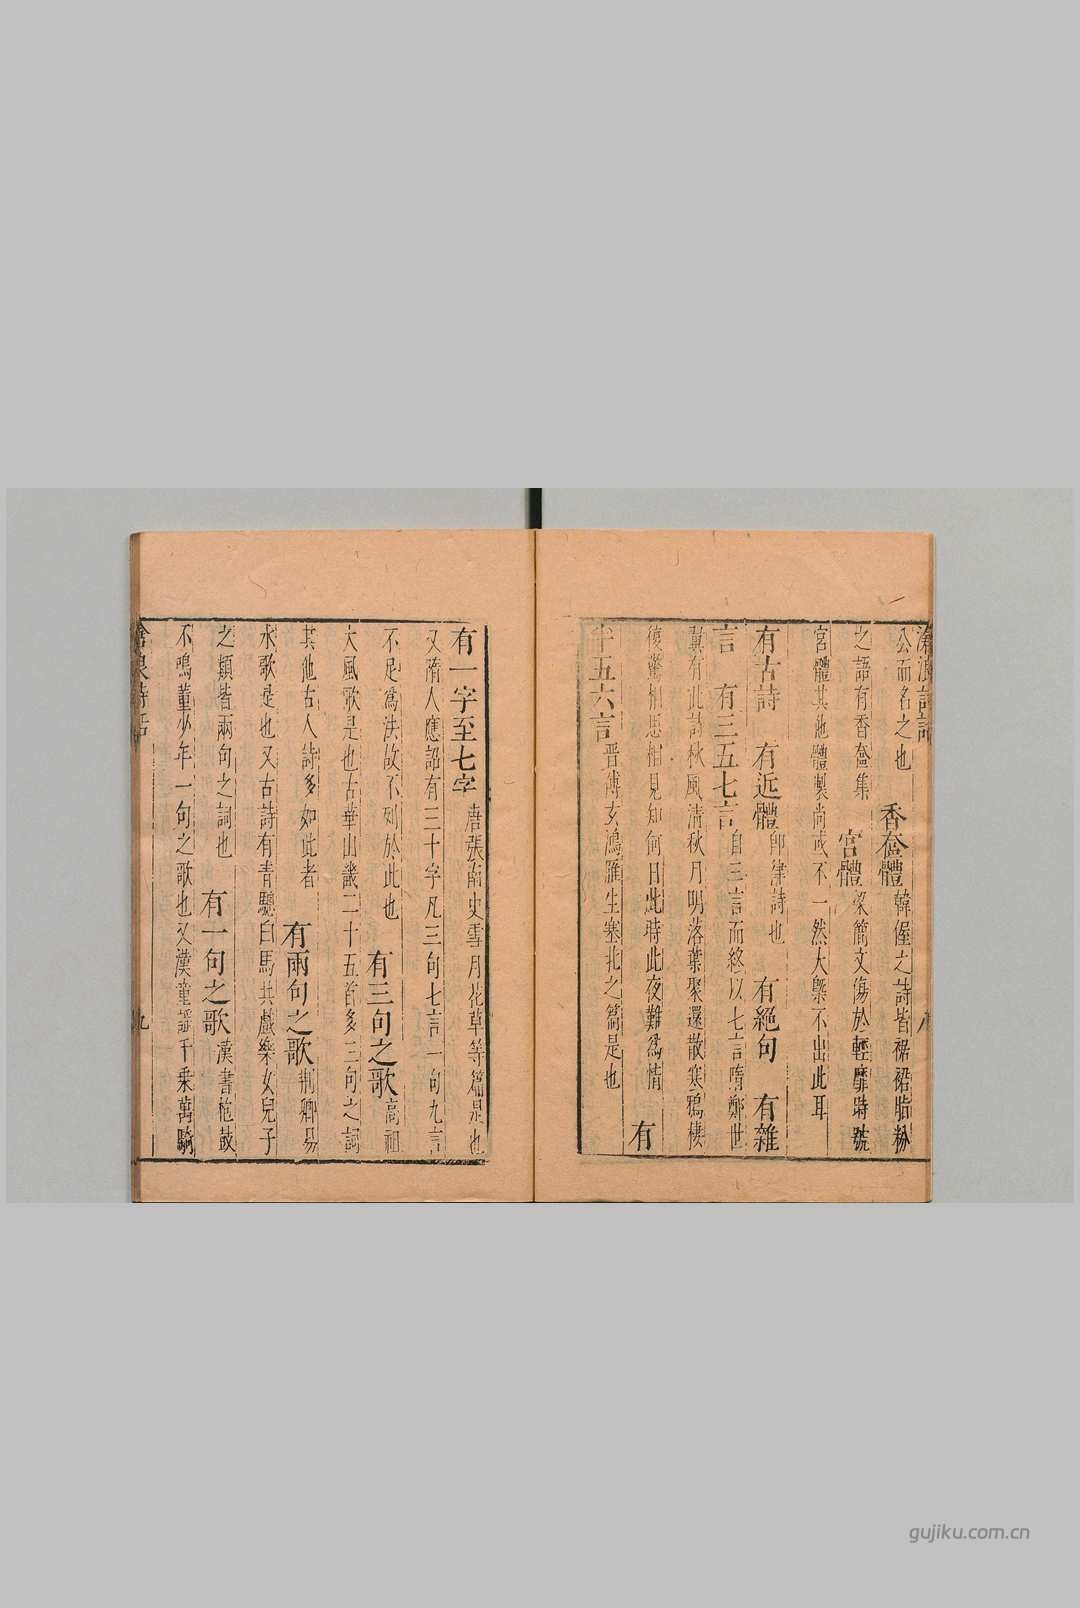 滄浪詩話
八
公而名之也 香奩體韓偓之詩皆裾裙脂粉
之語有香奩集 宮體梁簡文傷於輕靡時號
宮體其他體製尚或不一然大槩不出此耳
有古詩 有近體即律詩也 有絕句 有雜
言 有三五七言自三言而終以七言隋鄭世
翼有此詩秋風清秋月明落葉聚還散寒鴉棲
復驚相思相見知何日此時此夜難為情 有
半五六言晋傅玄鴻鴈生塞北之篇是也
有一字至七字唐張南史雪月花草等篇是也
又隋人應詔有三十字凡三句七言一句九言
不足為法故不列於此也 有三句之歌高祖
大風歌是也古華山畿二十五首多三句之詞
其他古人詩多如此者 有兩句之歌荆卿易
水歌是也又古詩有青驄白馬共戲樂女兒子
之類皆兩句之詞也 有一句之歌漢書枹鼓
不鳴董少年一句之歌也又漢童謡千乘萬騎
滄浪詩話
九
gujiku.com.cn